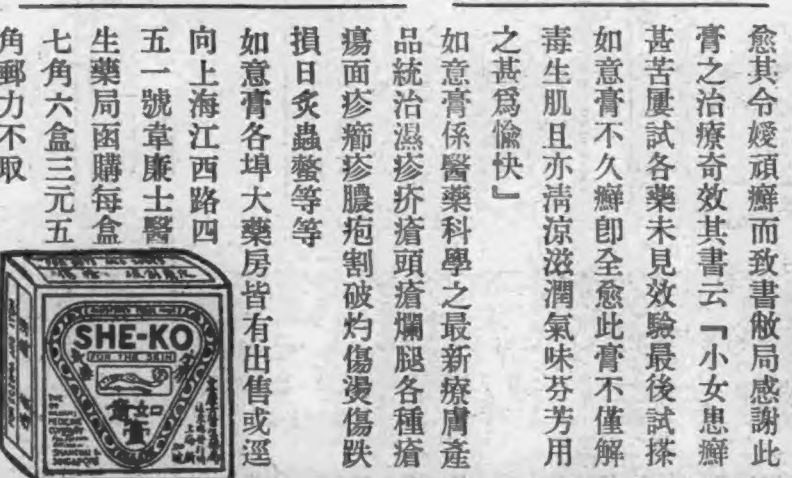 愈其令嫒頑癬而致書敝局感謝此
膏之治療奇效其書云『小女患癬
甚苦屢試各藥未見效驗最後試搽
如意膏不久癬卽全愈此膏不僅解
毒生肌且亦淸涼滋潤氣味芬芳用
之甚爲愉快』
如意膏係醫藥科學之最新療膚產
品統治濕疹疥瘡頭瘡爛腿各種瘡
瘍面疹癤疹膿疱割破灼傷燙傷跌
損日炙蟲螫等等
如意膏各埠大藥房皆有出售或逕
向上海江西路四
五一號韋廉士醫
生藥局函購每盒
七角六盒三元五
角郵力不取
SHE-KO
FOR THE SKIN
如意膏
THE
MEDICINE
COMPANY
SHANGHAI &
SINGAPORE